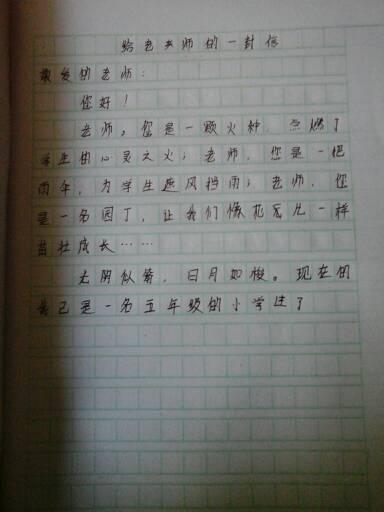 给老师的一封信
敬爱的老师:
您好!
老师,您是一颗火种,点燃了
学生的心灵之火;老师,您是一把
雨伞,为学生遮风挡雨;老师,您
是一名园丁,让我们像花儿一样
茁壮成长……
光阴似箭,日月如梭。现在的
我已是一名五年级的小学生了